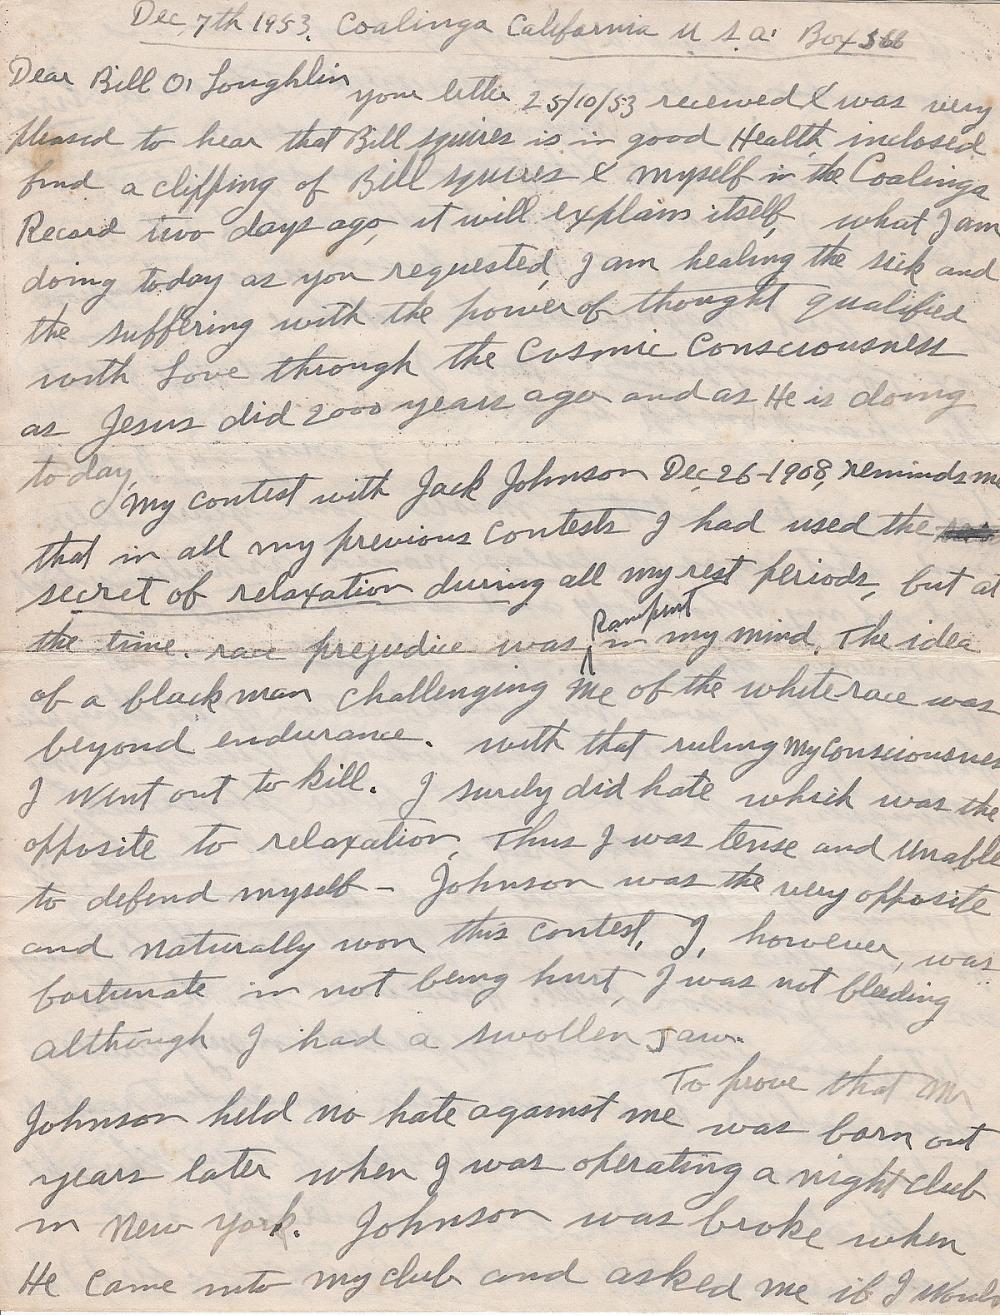 Dec 7th 1953. Coalinga California U S a. Box 566
Dear Bill O, Loughlin
your letter 25/10/53 received & was very
pleased to hear that Bill squires is in good Health, inclosed
find a clipping of Bill squires & myself in the Coalinga
Record two days ago, it will explain itself, what I am
doing today as you requested, I am healing the sick and
the suffering with the power of thought qualified
with Love through the Cosmic Consciousness
as Jesus did 2000 years ago and as He is doing
to day,
My contest with Jack Johnson Dec 26-1908, reminds me
that in all my previous contests I had used the
secret of relaxation during all my rest periods, but at
the time. race prejudice was Rampent in my mind, The idea
of a black man challenging me of the white race was
beyond endurance. with that ruling my Consciousnes
I went out to kill. I surely did hate which was the
opposite to relaxation, Thus I was tense and unable
to defend myself - Johnson was the very opposite
and naturally won this contest, I, however, was
fortunate in not being hurt, I was not bleeding
although I had a swollen Jaw.
To prove that Mr
Johnson held no hate against me was born out
years later when I was operating a night club
in New York. Johnson was broke when
He came into my club and asked me if I would